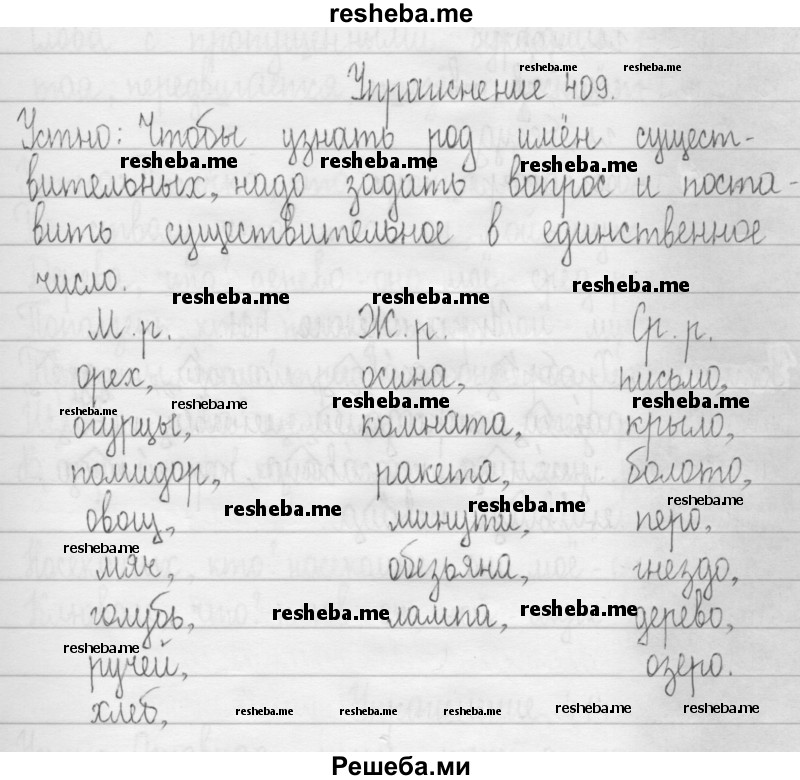 resheba.me
resheba.me resheba.me
Упражнение 409.
Устно: Чтобы узнать род имён сущест-
resheba.me resheba.me resheba.me
вительных, надо задать вопрос и поста-
вить существительное в единственное
число.
resheba.me resheba.me resheba.me
М.р. Ж.р. Ср.р.
орех, осина, письмо,
resheba.me resheba.me resheba.me resheba.me
огурцы, комната, крыло,
помидор, ракета, болото,
resheba.me resheba.me resheba.me
овощ, минута, перо,
resheba.me
мяч, обезьяна, гнездо,
голубь, лампа, дерево,
resheba.me resheba.me
resheba.me
ручей, озеро.
хлеб,
resheba.me resheba.me resheba.me resheba.me resheba.me
Решеба.ми